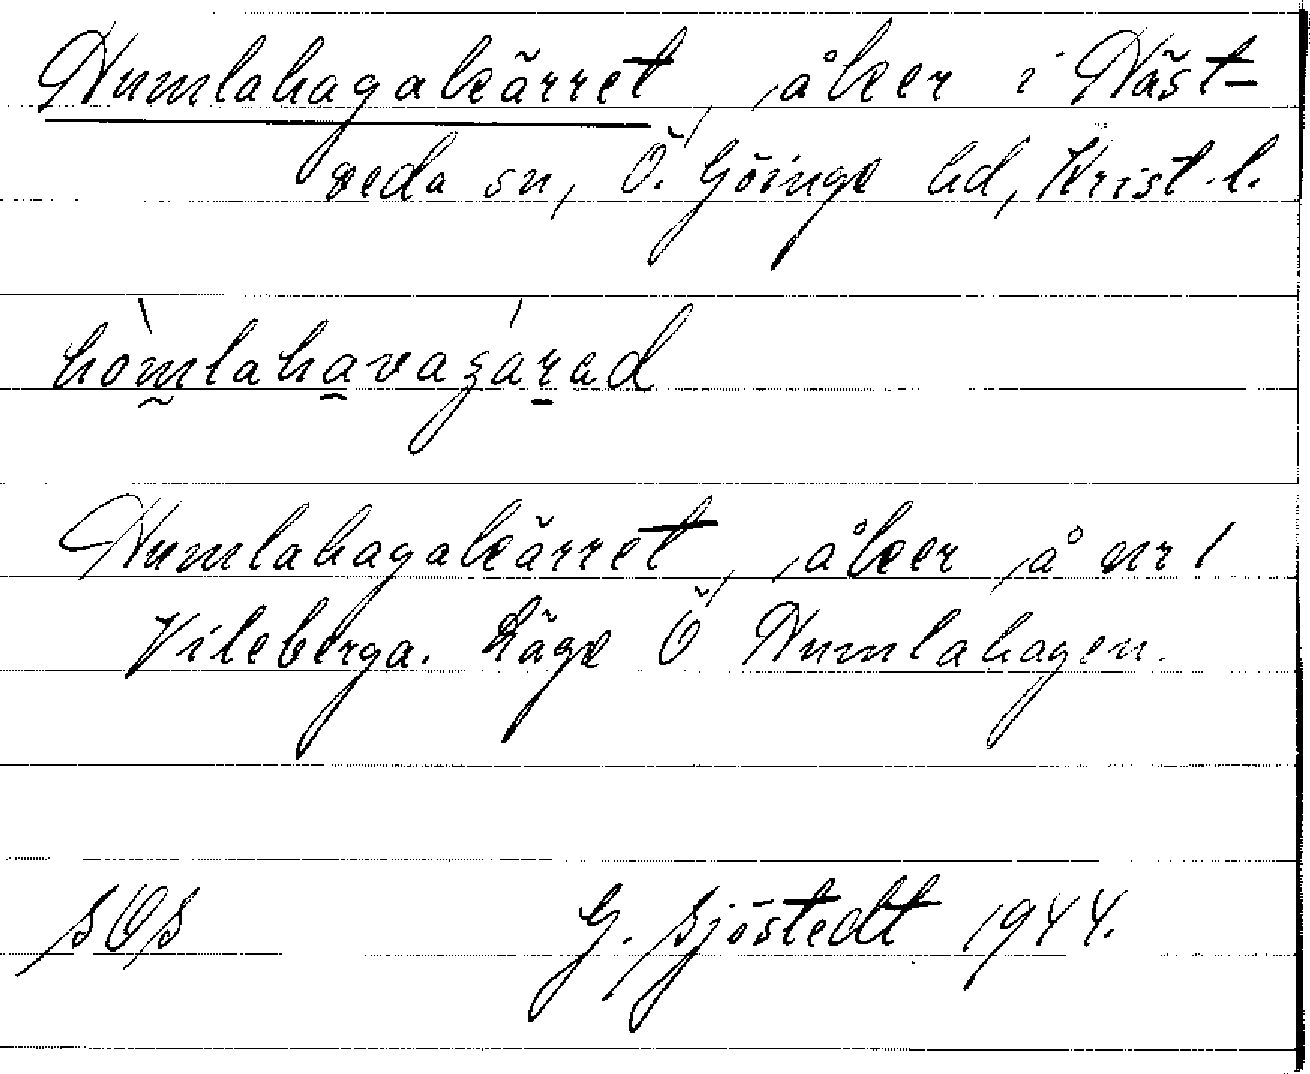 Humlahagakärret, åker i Näst-
veda sn, Ö. Göinge hd, Krist.l.
hòmlahavaʒárad
Humlahagakärret, åker å nr 1
Vileberga. Läge Ö Humlahagen.
SOS G. Sjöstedt 1944.